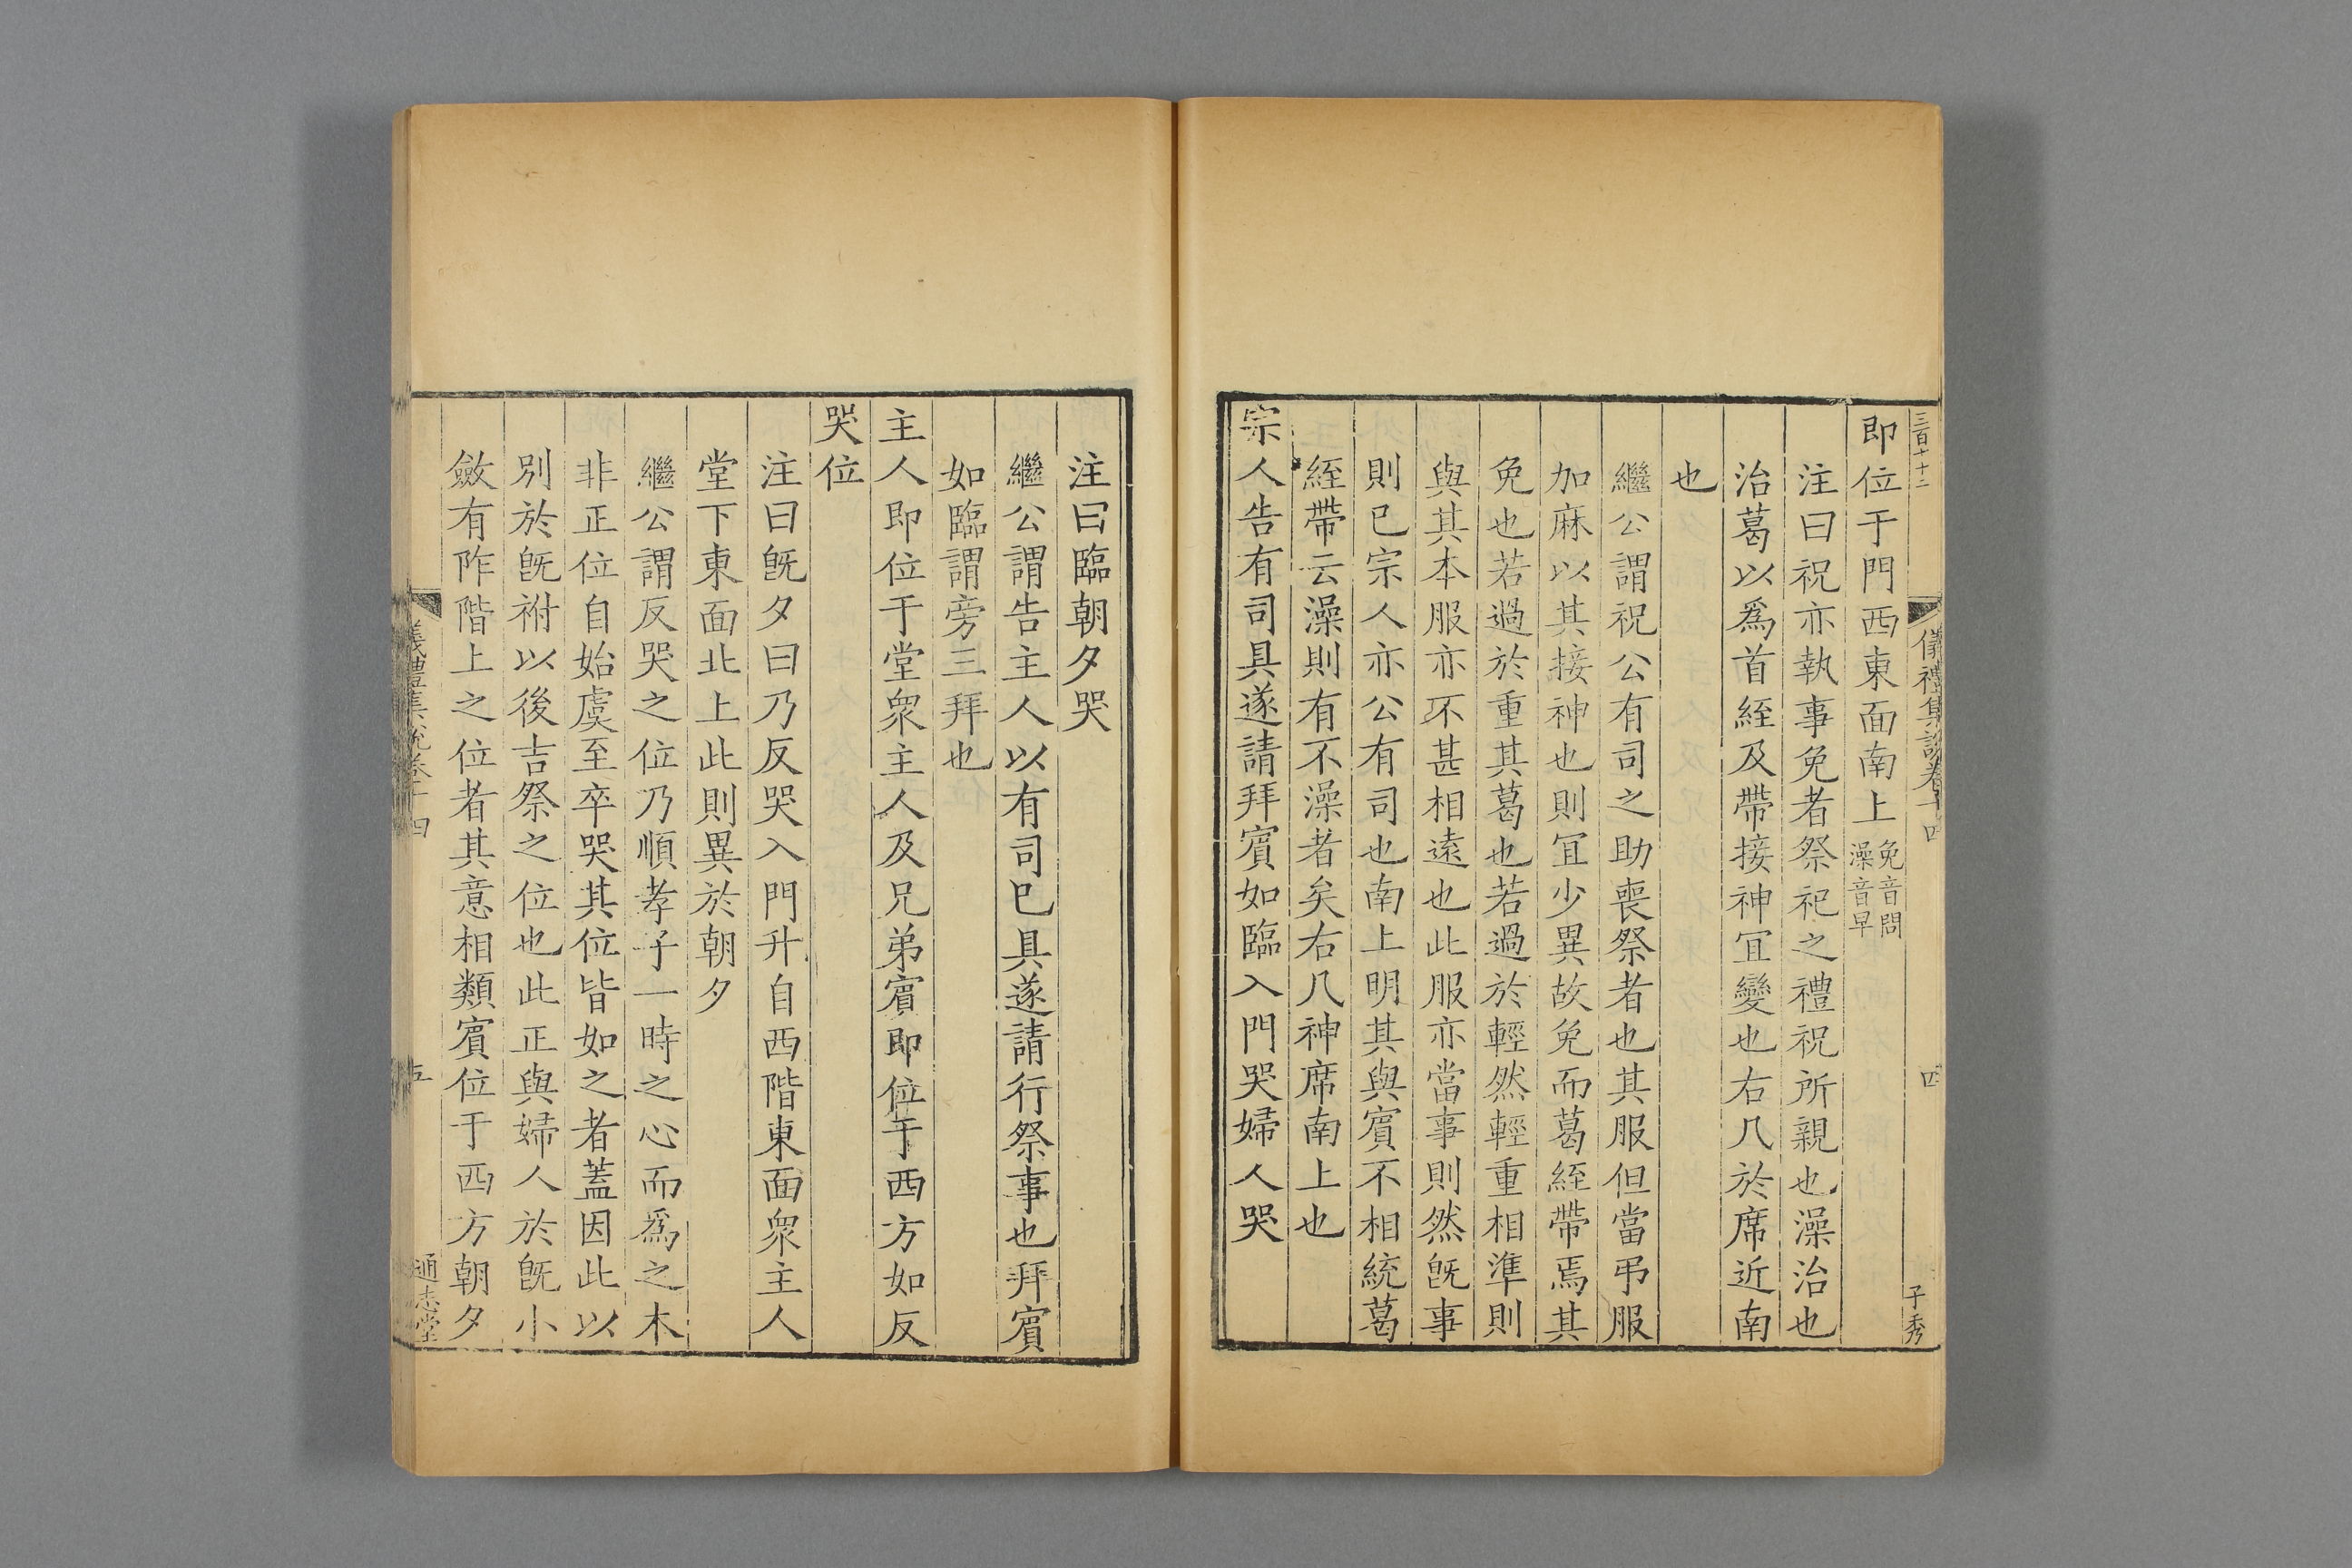 三百十十二
儀禮集說卷十四
四
子秀
即位于門西東面南上免音問澡音早
注曰祝亦執事免者祭祀之禮祝所親也澡治也
治葛以爲首絰及帶接神冝變也右几於席近南
也
繼公謂祝公有司之助喪祭者也其服但當弔服
加麻以其接神也則冝少異故免而葛絰帶焉其
免也若過於重其葛也若過於輕然輕重相準則
與其本服亦不甚相遠也此服亦當事則然旣事
則已宗人亦公有司也南上明其與賔不相統葛
絰帶云澡則有不澡者矣右几神席南上也
宗人告有司具遂請拜賔如臨入門哭婦人哭
注曰臨朝夕哭
繼公謂告主人以有司已具遂請行祭事也拜賔
如臨謂旁三拜也
主人即位于堂衆主人及兄弟賔即位于西方如反
哭位
注曰旣夕曰乃反哭入門升自西階東面衆主人
堂下東面北上此則異於朝夕
繼公謂反哭之位乃順孝子一時之心而爲之木
非正位自始虞至卒哭其位皆如之者蓋因此以
別於旣祔以後吉祭之位也此正與婦人於旣小
斂有阼階上之位者其意相類賔位于西方朝夕
儀禮集說卷十四
五
通志堂